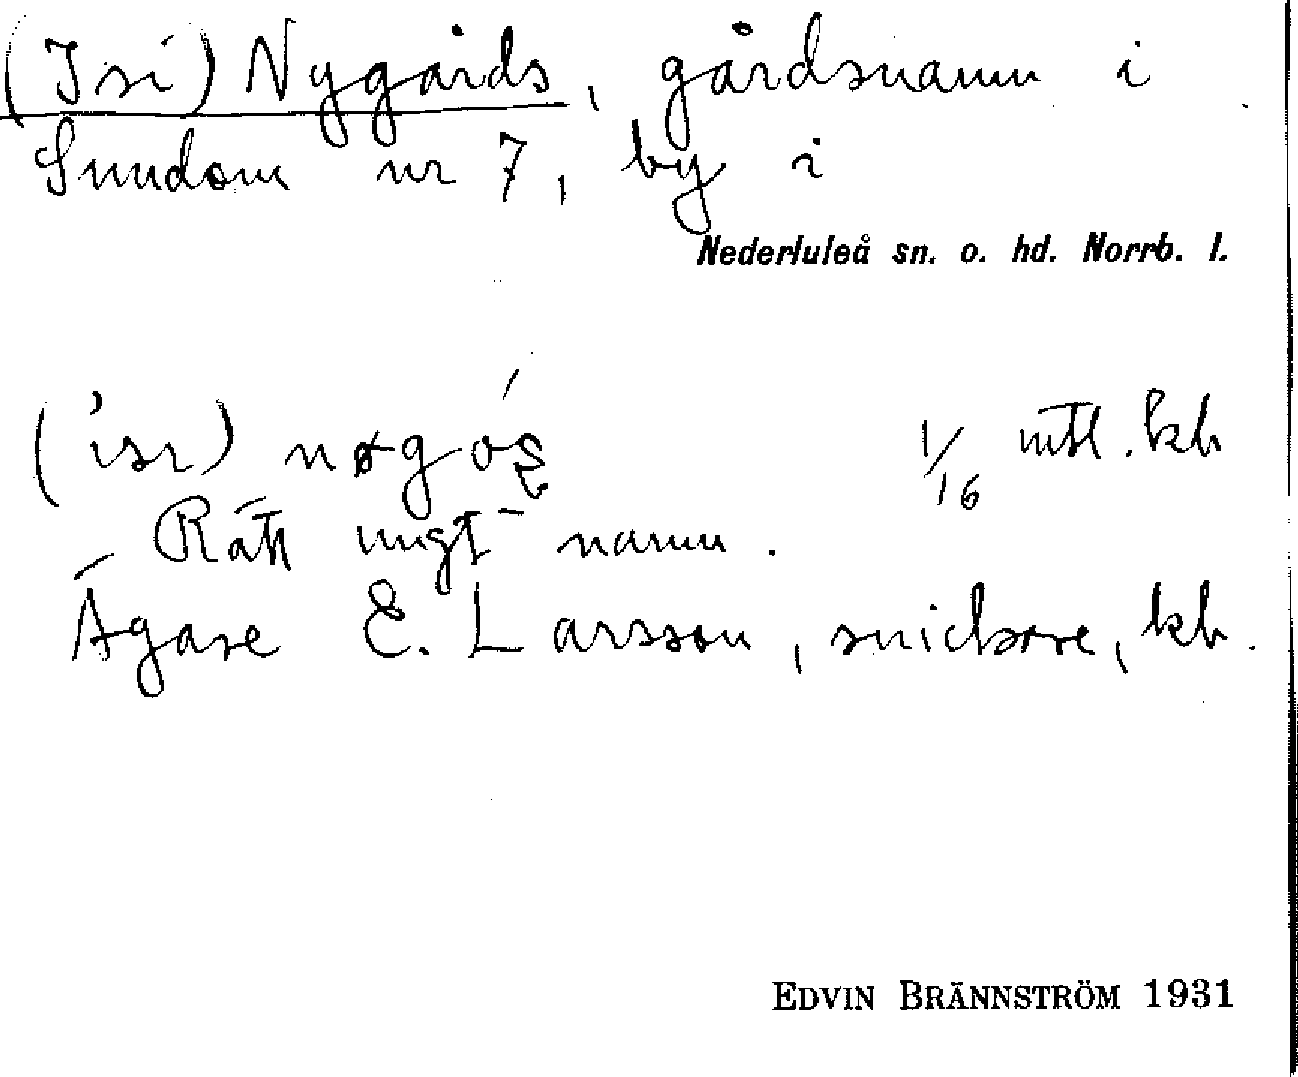 (Isi) Nygårds, gårdsnamn i
Sundom nr 7, by i
Nederluleå sn. o. hd. Norrb. l.
1/16 mtl. kb
Rätt ungt namn.
Ägare E. Larsson, snickare, kb.
EDVIN BRÄNNSTRÖM 1931